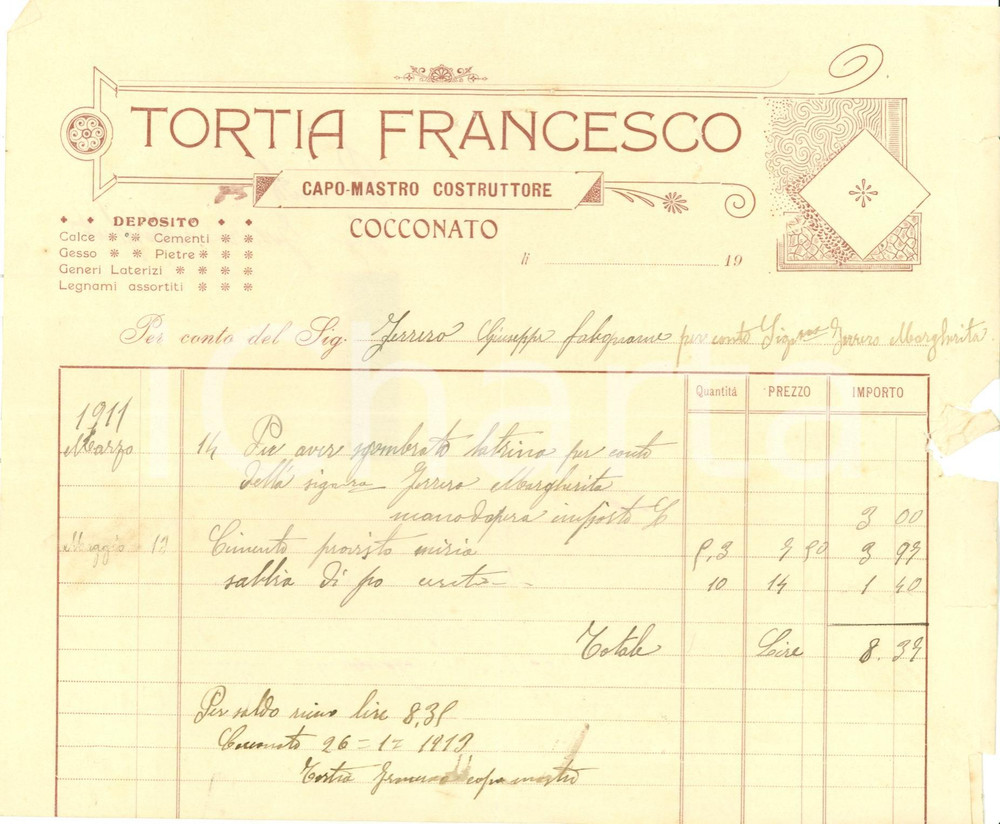 TORTIA FRANCESCO
CAPO-MASTRO COSTRUTTORE
COCCONATO
DEPOSITO
Calce Cementi
Gesso Pietre
Generi Laterizi
Legnami assortiti
li 19
Per conto del Sig. Ferrero Giuseppe falegname per conto Sigra Ferrero Margherita
Quantitá PREZZO IMPORTO
1911
Marzo 14 Per aver sgombrato latrina per conto
della signora Ferrero Margherita
manodopera imposto £ 3 00
Maggio Cimento provisto 5,3 7 50 3 97
sabbia di po 10 14 1 40
Totale Lire 8.37
Per saldo lire 8,35
Cocconato 26=1=1913
Tortia Francesco capo mastro
iCharta